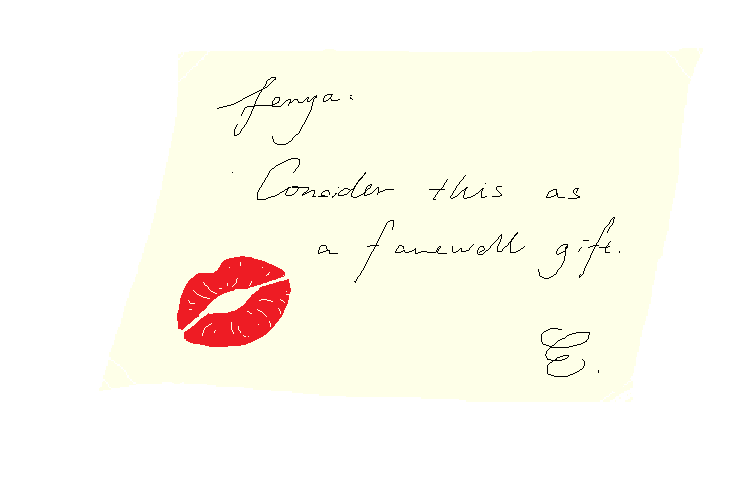 Fenya:
Consider this as
a farewell gift.
E.